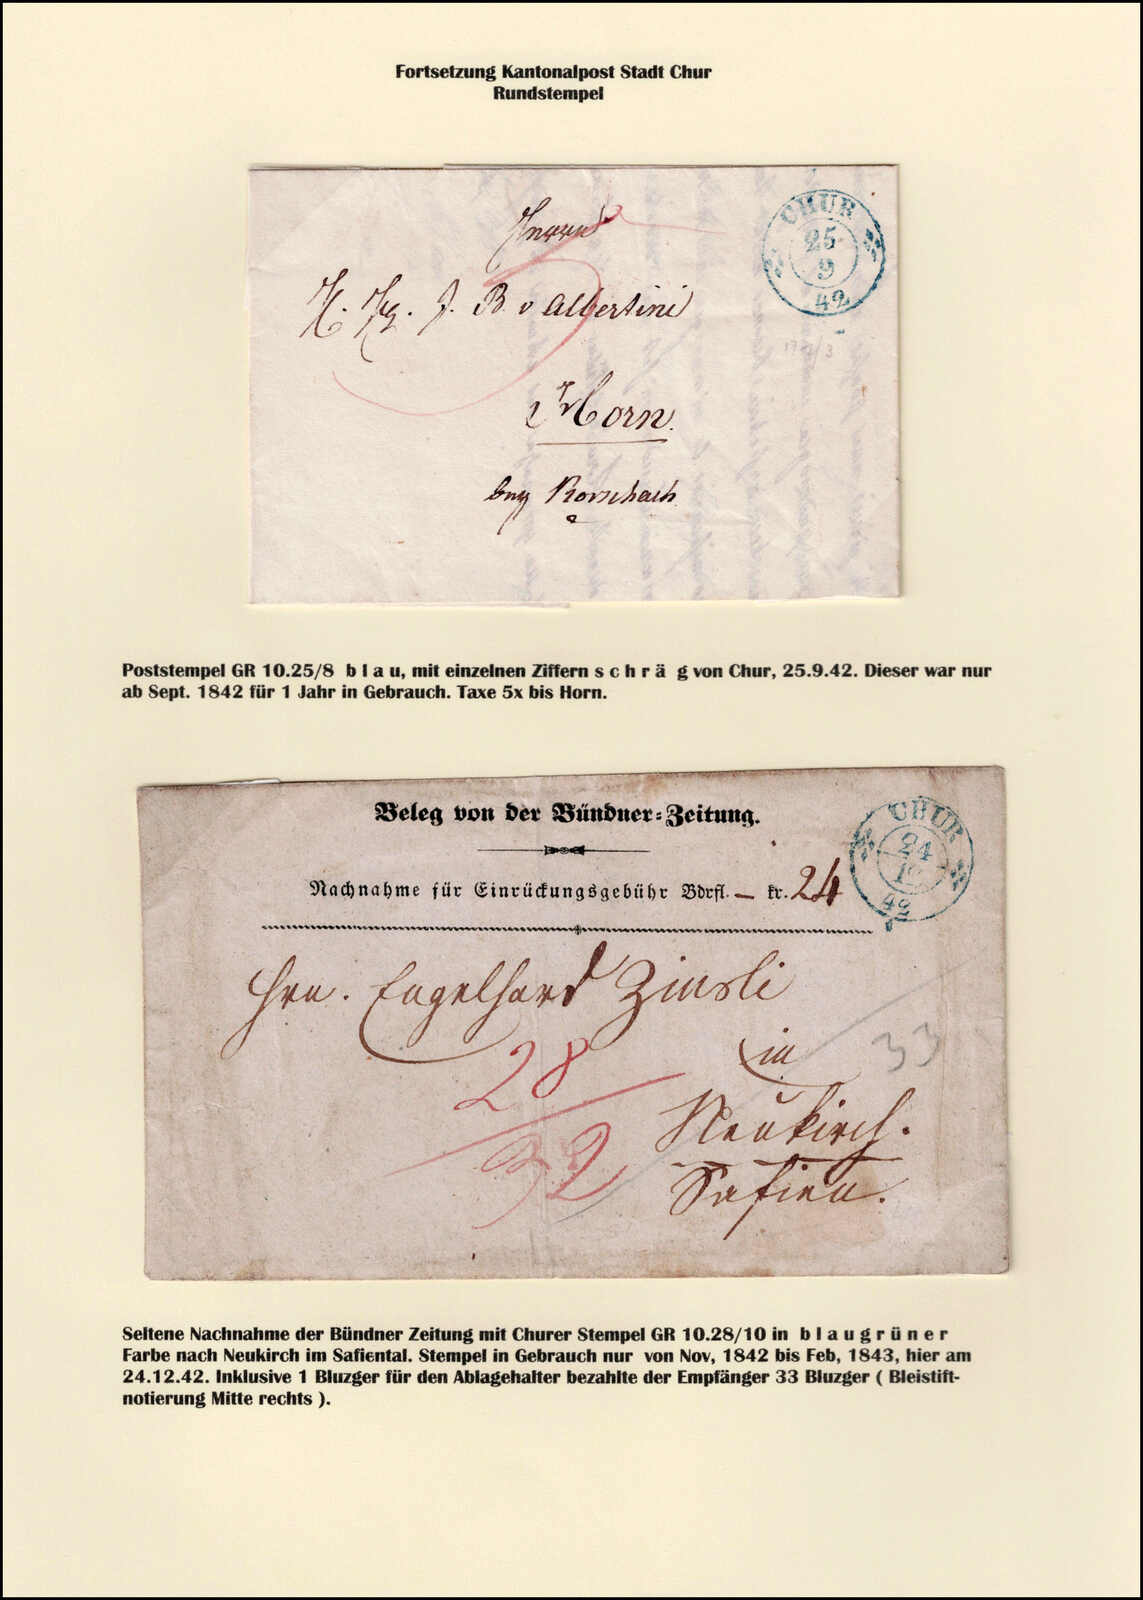 Fortsetzung Kantonalpost Stadt Chur
Rundstempel
CHUR
25
9
42
Herrn
H. Hz. J. B. v Albertini
Horn
bey Rorschach
Poststempel GR 10.25/8 b l a u, mit einzelnen Ziffern s c h r ä g von Chur, 25.9.42. Dieser war nur
ab Sept. 1842 für 1 Jahr in Gebrauch. Taxe 5x bis Horn.
Beleg von der Bündner-Zeitung.
Nachnahme für Einrückungsgebühr Bdrfl. — kr. 24
CHUR
24
12
42
Hrn. Engelhard Zinsli
in
33
28
32
Neukirch.
Safien.
Seltene Nachnahme der Bündner Zeitung mit Churer Stempel GR 10.28/10 in b l a u g r ü n e r
Farbe nach Neukirch im Safiental. Stempel in Gebrauch nur von Nov, 1842 bis Feb, 1843, hier am
24.12.42. Inklusive 1 Bluzger für den Ablagehalter bezahlte der Empfänger 33 Bluzger ( Bleistift-
notierung Mitte rechts ).